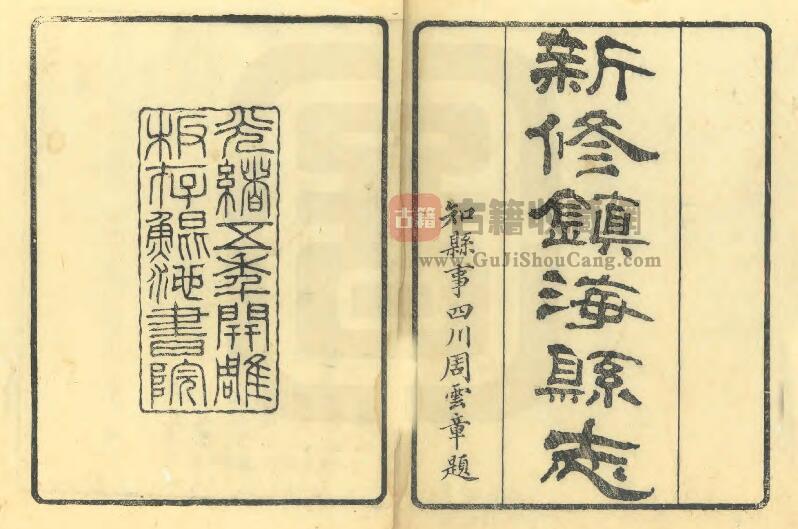 新修鎮海縣志
知縣事四川周雲章題
光緒五年開雕
板存鯤池書院
古籍
古籍收藏網
www.GuJiShouCang.com